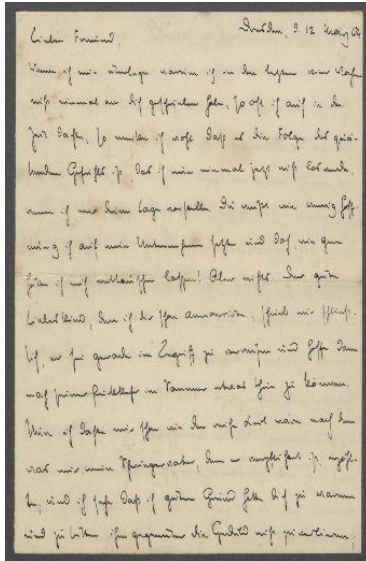 Dresden, 9. 12.
Lieber Freund,
Wenn ich mir überlege warum ich in den letzten vier Wochen
nicht einmal an dich geschrieben habe, so oft ich auch in der
Zeit dachte, so merke ich wohl daß es die Folge des
Gefühls ist, das ich nun einmal jetzt nicht loswerde,
wenn ich mir deine Lage vorstelle. Du weißt wie wenig Hoff-
nung ich auf mein Unternehmen setzte und doch, wie gern
hätte ich mich enttäuschen lassen! Aber nichts. Der gute
Liebeskind, dem ich der schrieb mir schließ-
lich, er sei gerade im Begriff zu verreisen und hoffe dann
nach seiner Rückkehr im Sommer etwas thun zu können.
Nun ich dachte mir schon wie das nach dem
was mir mein Schwiegervater, dem er verpflichtet ist, erzähl-
te, und ich sehe daß ich guten Grund hatte dich zu warnen
und zu bitten ihm gegenüber die Geduld nicht zu verlieren,